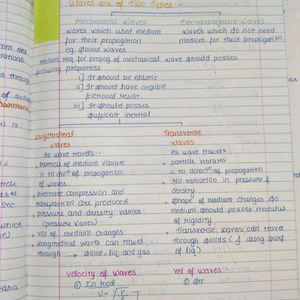 Waves are of Two Types :-
Mechanical Waves
waves which used medium
for their propagation
eg. sound waves
Electromagnetic Waves
waves which do not need
medium for their propagation
medium req for propog of mechanical wave should posses
following properties
i] It should be elastic
ii] It should have neglible
frictional resist.
iii] It should posses
sufficient inertial
Longitudinal
waves
As wave travels :-
Particles of medium vibrate
|| to dirⁿ of propogation
of waves.
Alternate compression and
are produced
pressure and density varies
(pressure waves)
vol of medium changes
longitudinal waves can travel
through → solid, liq and gas
Transverse
waves
As wave travels
particle vibrates
⊥ to directⁿ of propogation
NO variation in pressure &
density
shape of medium changes so
medium should posses modulus
of rigidity
Transverse waves can travel
through solids (& along surf
of liq)
velocity of waves
① In rod
vel of waves
①